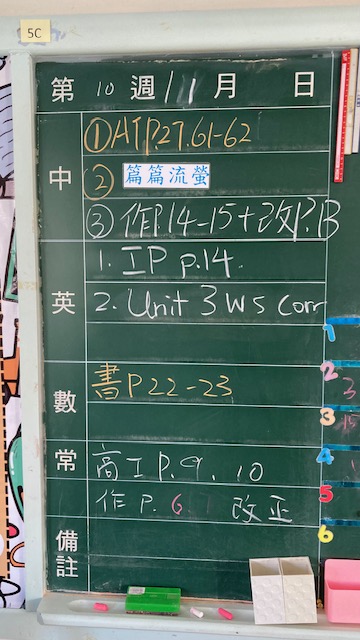 5C
第 10 週 11 月 日
中 ① AI P.27.61-62
② 篇篇流螢
③ 作P.14-15+改P.13
英 1. IP p.14.
2. Unit 3 WS corr
數 書P22-23
常 高IP.9, 10
作 P. 6 改正
備註
1
2
3
4
5
6